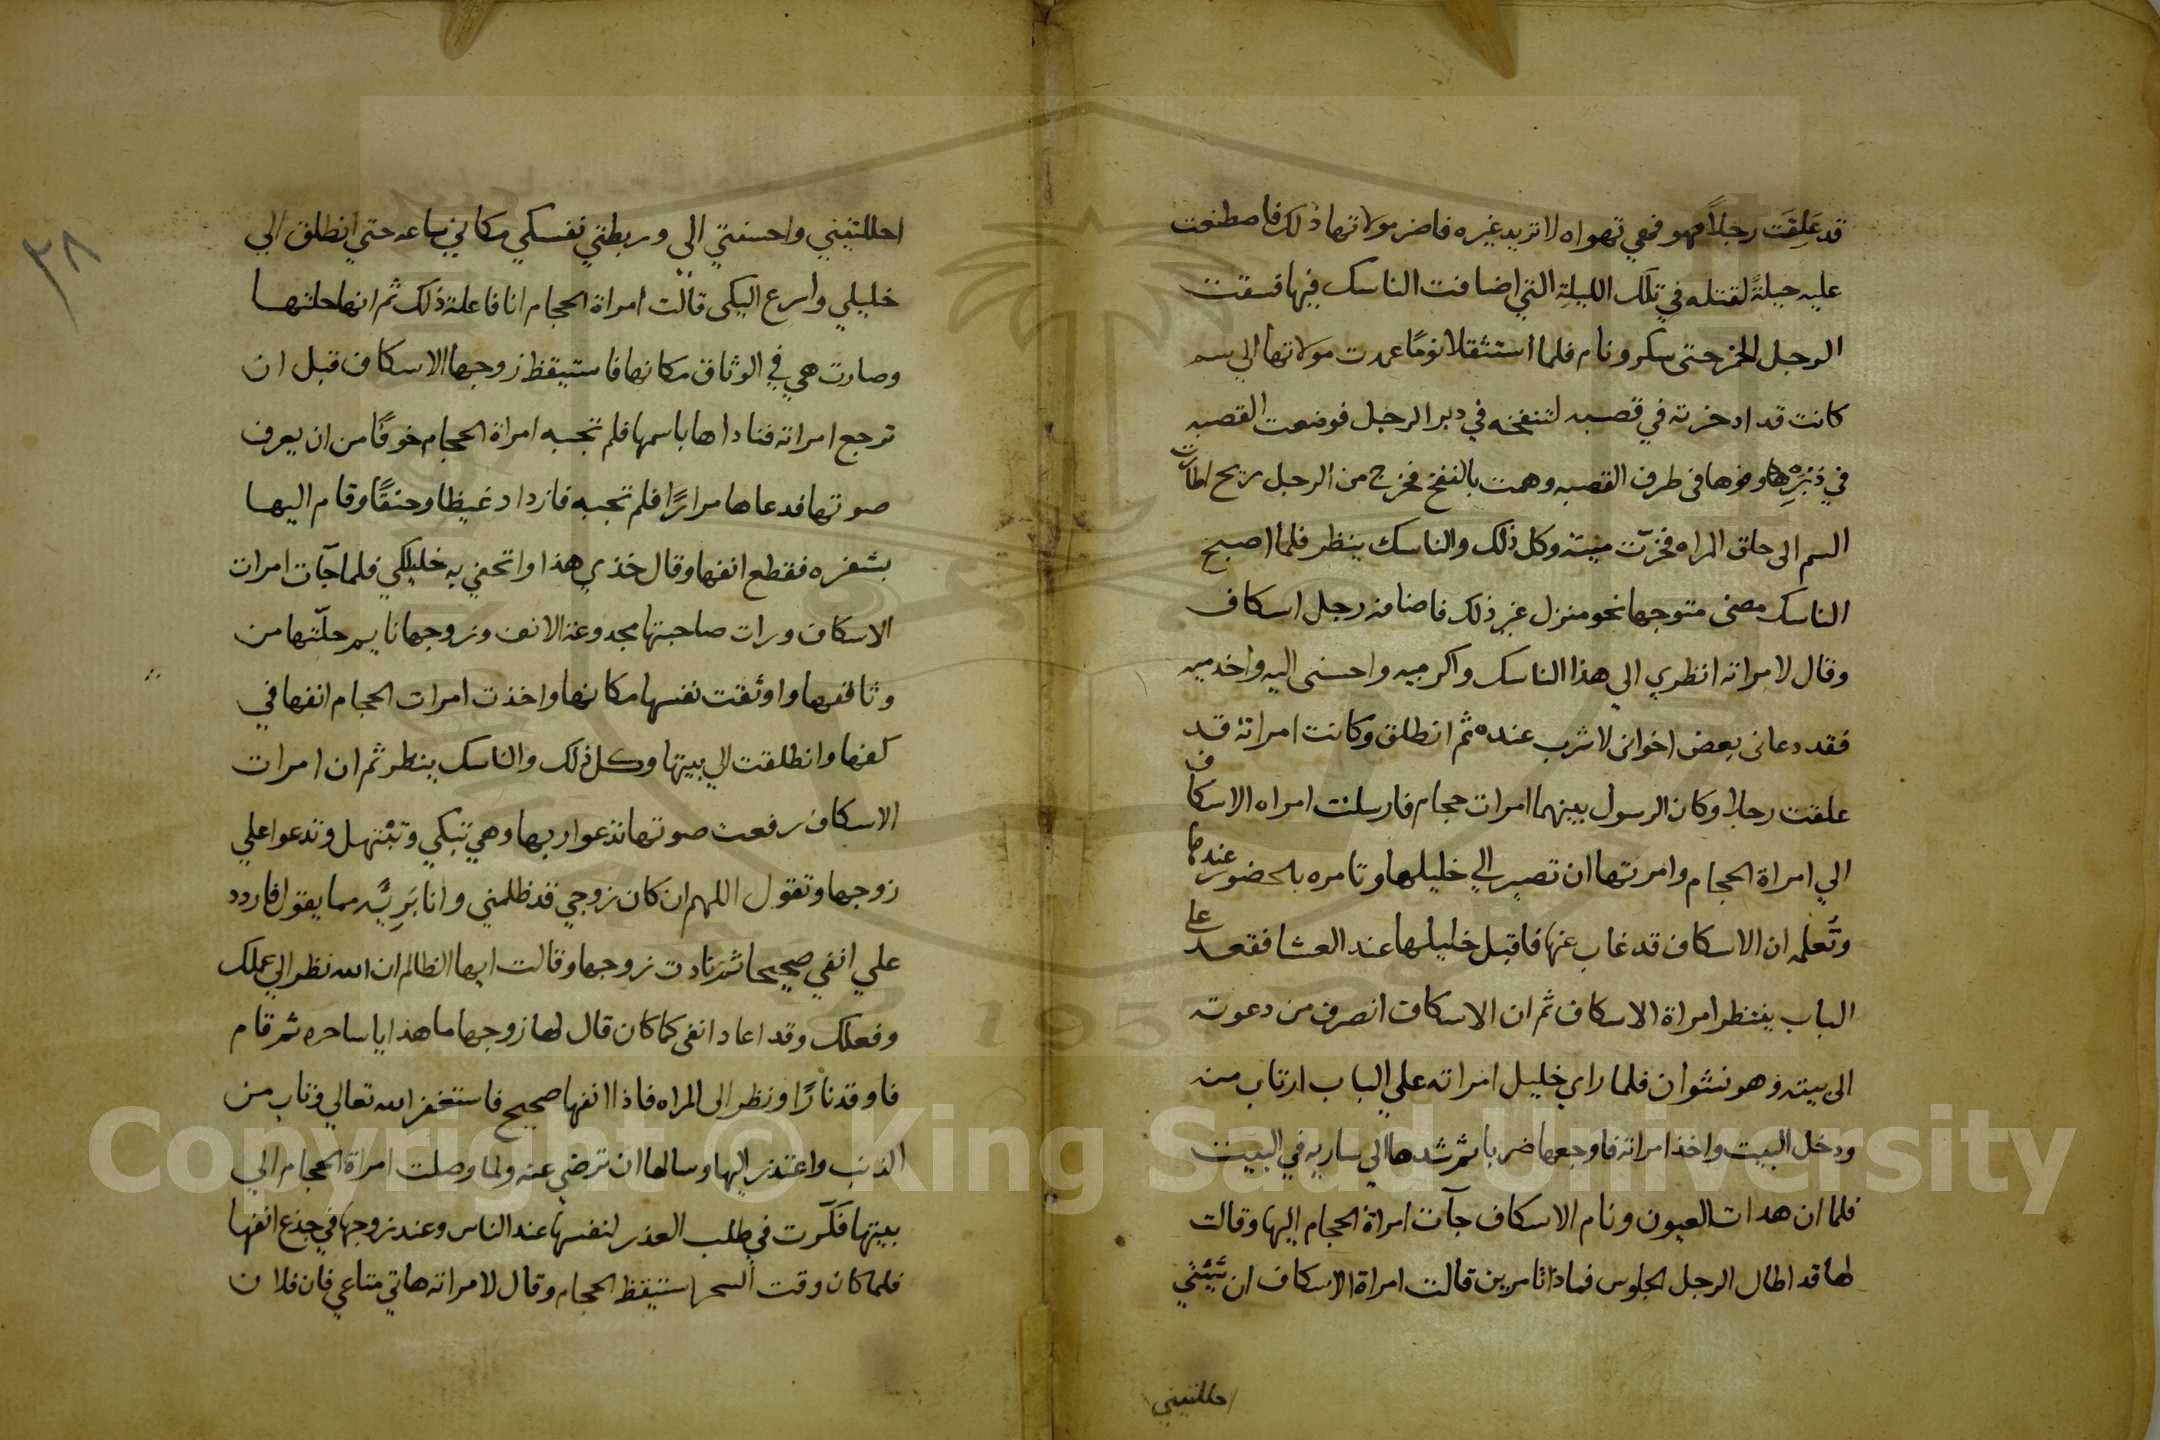 قد عَلِقَت رجلاً فهو فهي تهواه لا تريد غيره فاضر مولاتها ذلك فاصطنعت
عليه حيلةً لقتله في تلك الليلة التي اضافت الناسك فيها فسقت
الرجل الخمر حتى سكر ونام فلما استثقلا نومًا عمدت مولاتها الي سم
كانت قد ادخرته في قصبه لتنفخه في دبر الرجل فوضعت القصبه
في دُبُرِه وفوها في طرف القصبه وهمت بالنفخ فخرج من الرجل ريح اطارت
السم الى حلق المراه فخرّت ميته وكل ذلك والناسك ينظر فلما اصبح
الناسك مضى متوجها نحو منزل غير ذلك فاضافه رجل اسكاف
وقال لامراته انظري الي هذا الناسك واكرميه واحسنى اليه واخدميه
فقد دعانى بعض اخوانى لاشرب عنده ثم انطلق وكانت امراته قد
علقت رجلا وكان الرسول بينهما امرات حجام فارسلت امراه الاسكاف
الي امراة الحجام وامرتها ان تصير الي خليلها وتامره بالحضور عندها
وتَعلمه ان الاسكاف قد غاب عنها فاقبل خليلها عند العشا فقعد على
الباب ينتظر امراة الاسكاف ثم ان الاسكاف انصرف من دعوته
الى بيته وهو نشوان فلما راي خليل امراته علي الباب ارتاب منه
ودخل البيت واخذ امراته فاوجعها ضربا ثم شدها الي ساريه في البيت
فلما ان هدات العيون ونام الاسكاف جآت امراة الحجام اليها وقالت
لها قد اطال الرجل الجلوس فماذا تامرين قالت امراة الاسكاف ان شئتي
احللتيني
٣٨
احللتيني واحسنتي الى وربطتي نفسكي مكاني ساعه حتي انطلق الي
خليلي واسرع اليكى قالت امراة الحجام انا فاعلة ذلك ثم انها حلتها
وصارت هي في الوثاق مكانها فاستيقظ زوجها الاسكاف قبل ان
ترجع امراته فناداها باسمها فلم تجبه امراة الحجام خوفًا من ان يعرف
صوتها فدعاها مرارًا فلم تجبه فازداد غيظا وحنقًا وقام اليها
بشفره فقطع انفها وقال خذي هذا واتحفي به خليلكي فلما جآت امرات
الاسكاف ورات صاحبتها مجدوعة الانف وزوجها نايم حلّتها من
وثاقفها واوثقت نفسها مكانها واخذت امرات الحجام انفها في
كفها وانطلقت الي بيتها وكل ذلك والناسك ينظر ثم ان امرات
الاسكاف رفعت صوتها تدعوا ربها وهي تبكي وتبتهل وتدعوا علي
زوجها وتقول اللهم ان كان زوجي قد ظلمني وانا بَرِيّه مما يقول فاردد
علي انفي صحيحا ثم نادت زوجها وقالت ايها الظالم ان الله نظر الي عملك
وفعلك وقد اعاد انفى كما كان قال لها زوجها ما هذا يا ساحره ثم قام
فاوقد نارًا ونظر الى المراه فاذا انفها صحيح فاستغفر الله تعالي وتاب من
الذنب واعتذر اليها وسالها ان ترضي عنه ولما وصلت امراة الحجام الي
بيتها فكّرت في طلب العذر لنفسها عند الناس وعند زوجها في جذع انفها
فلما كان وقت السحر استيقظ الحجام وقال لامراته هاتي متاعي فان فلان